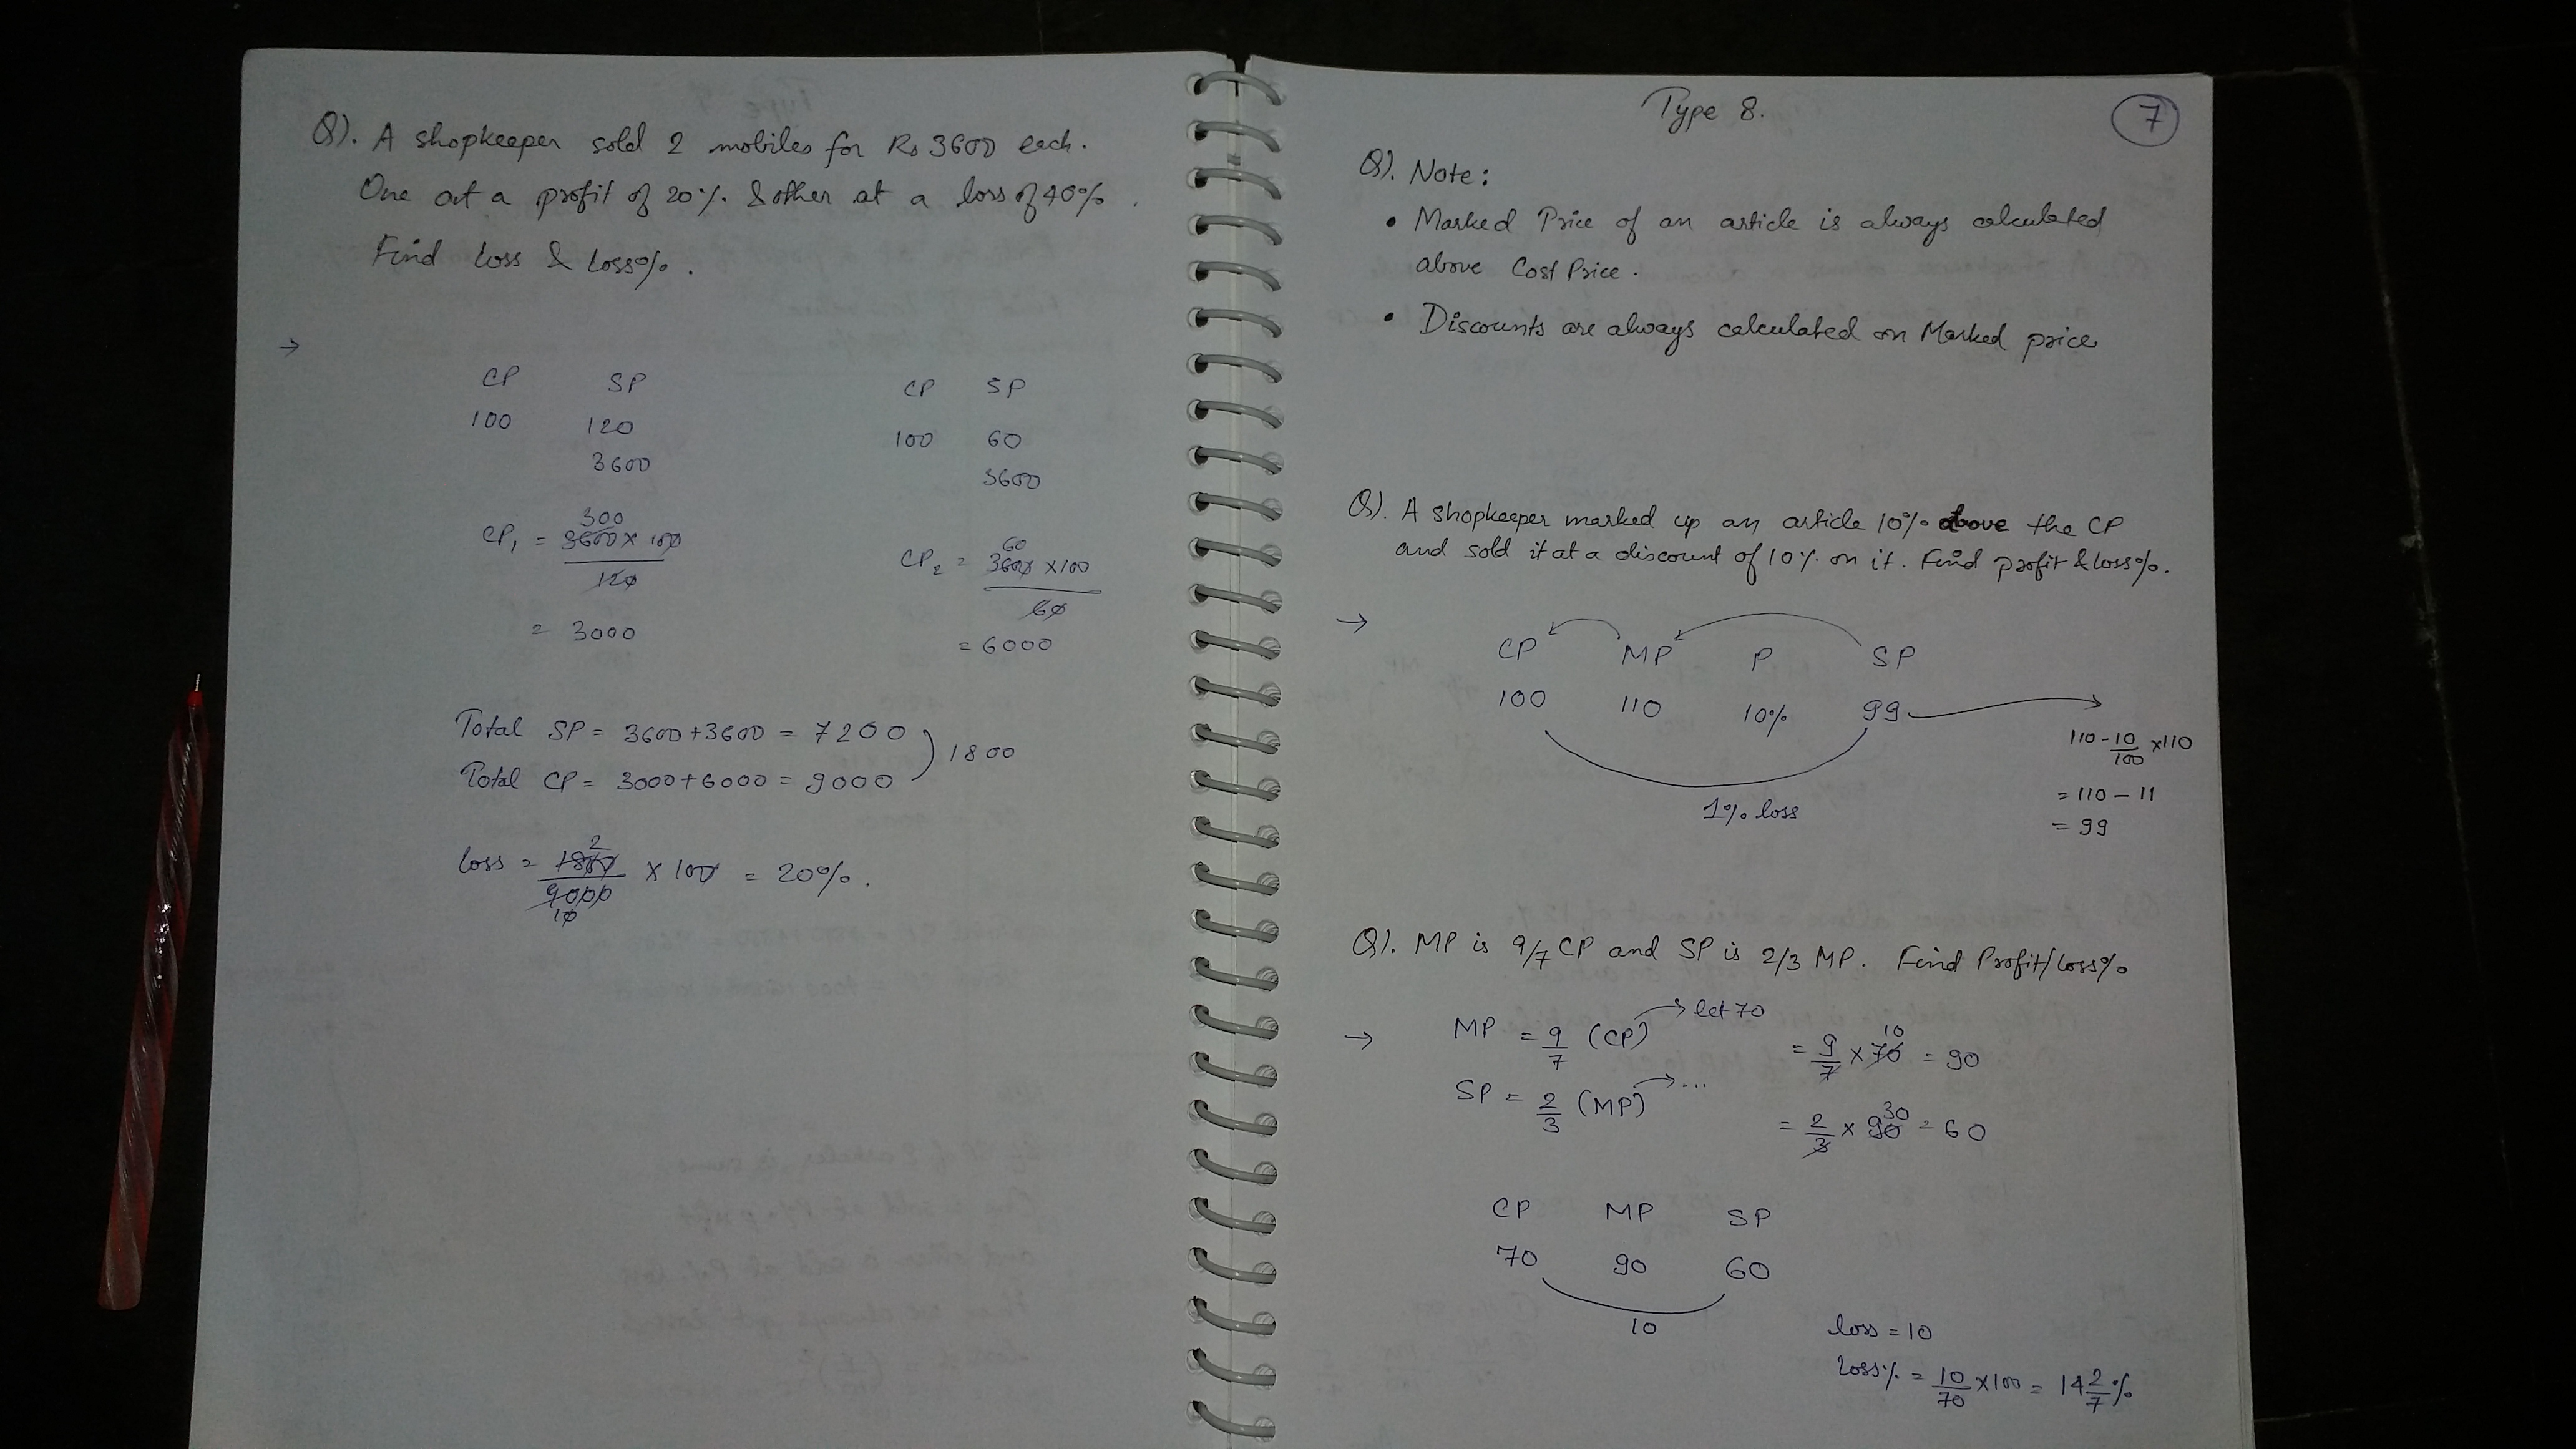 Q). A shopkeeper sold 2 mobiles for Rs 3600 each.
One at a profit of 20% & other at a loss of 40%.
Find loss & loss%.
→
CP SP
100 120
3600
CP SP
100 60
3600
300
CP₁ = 3600 x 100
120
= 3000
60
CP₂ = 3600 x 100
60
= 6000
Total SP = 3600+3600 = 7200
1800
Total CP = 3000+6000 = 9000
2
loss = 1800 x 100 = 20%.
9000
10
Type 8.
7
Q). Note:
• Marked Price of an article is always calculated
above Cost Price.
• Discounts are always calculated on Marked price
Q). A shopkeeper marked up an article 10% above the CP
and sold it at a discount of 10% on it. Find profit & loss%.
→
CP MP P SP
100 110 10% 99 →
110 - 10/100 x110
= 110 - 11
= 99
1% loss
Q). MP is 9/7 CP and SP is 2/3 MP. Find Profit/loss%
→ MP = 9/7 (CP) → let 70
10
= 9/7 x 70 = 90
SP = 2/3 (MP) → ...
30
= 2/3 x 90 = 60
CP MP SP
70 90 60
10
loss = 10
loss% = 10/70 x100 = 14 2/7 %